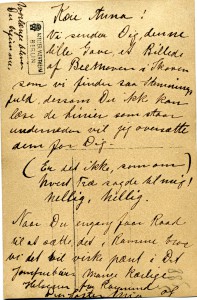 Kære Anna!
Vi sender Dig denne
lille Gave et Billed
af Beethoven i Skoven
som vi finder saa stemnings
fuld, dersom Du ikk kan
læse de linier som staar
underneden vil jeg oversætte
dem for Dig.
(Er det ikke, som om
hvert Træ sagde til mig!
Hellig, Hellig.
Naar Du engang faar Raad
til at sætte det i Ramme
vi det vil virke pænt i Det
Mange Kærlige
Hilsener fra